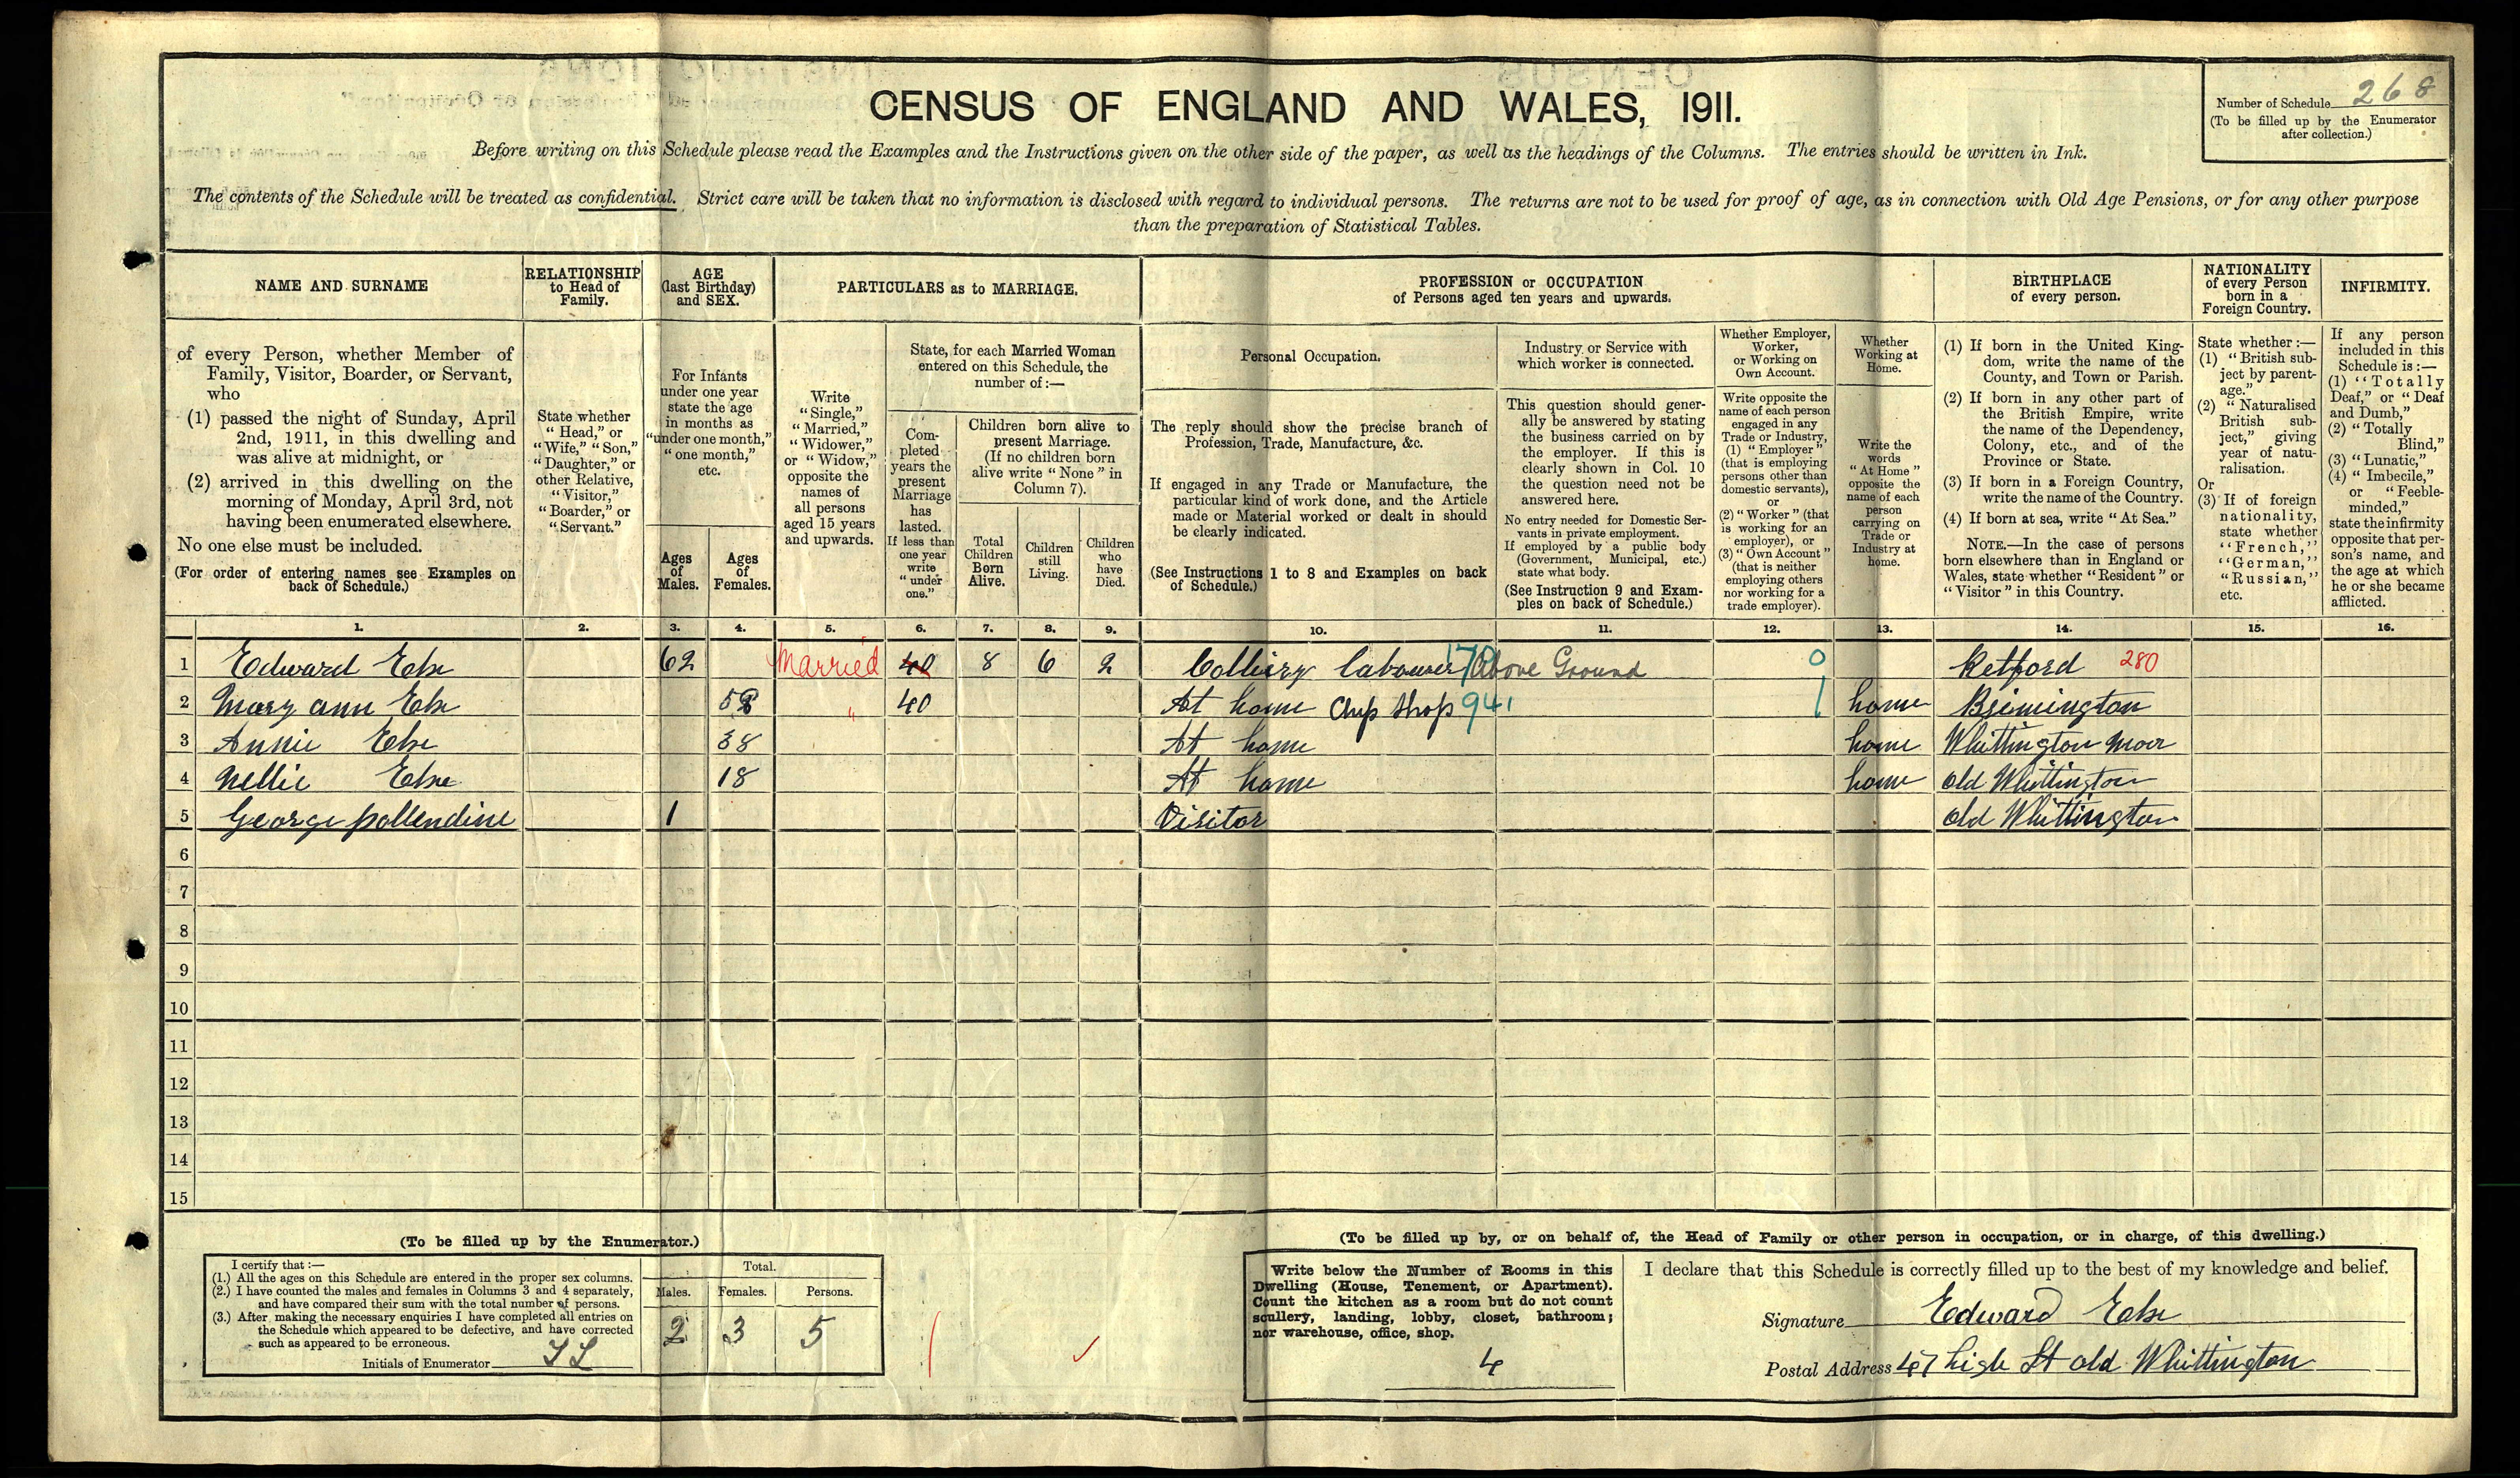 CENSUS OF ENGLAND AND WALES, 1911.
Number of Schedule 268
(To be filled up by the Enumerator
after collection.)
Before writing on this Schedule please read the Examples and the Instructions given on the other side of the paper, as well as the headings of the Columns. The entries should be written in Ink.
The contents of the Schedule will be treated as confidential. Strict care will be taken that no information is disclosed with regard to individual persons. The returns are not to be used for proof of age, as in connection with Old Age Pensions, or for any other purpose
than the preparation of Statistical Tables.
NAME AND SURNAME
of every Person, whether Member of
Family, Visitor, Boarder, or Servant,
who
(1) passed the night of Sunday, April
2nd, 1911, in this dwelling and
was alive at midnight, or
(2) arrived in this dwelling on the
morning of Monday, April 3rd, not
having been enumerated elsewhere.
No one else must be included.
(For order of entering names see Examples on
back of Schedule.)
RELATIONSHIP
to Head of
Family.
State whether
"Head," or
"Wife," "Son,"
"Daughter," or
other Relative,
"Visitor,"
"Boarder," or
"Servant."
AGE
(last Birthday)
and SEX.
For Infants
under one year
state the age
in months as
"under one month,"
"one month,"
etc.
Ages
of
Males.
Ages
of
Females.
PARTICULARS as to MARRIAGE.
Write
"Single,"
"Married,"
"Widower,"
or "Widow,"
opposite the
names of
all persons
aged 15 years
and upwards.
State, for each Married Woman
entered on this Schedule, the
number of:—
Com-
pleted
years the
present
Marriage
has
lasted.
If less than
one year
write
"under
one."
Children born alive to
present Marriage.
(If no children born
alive write "None" in
Column 7).
Total
Children
Born
Alive.
Children
still
Living.
Children
who
have
Died.
PROFESSION or OCCUPATION
of Persons aged ten years and upwards.
Personal Occupation.
The reply should show the precise branch of
Profession, Trade, Manufacture, &c.
If engaged in any Trade or Manufacture, the
particular kind of work done, and the Article
made or Material worked or dealt in should
be clearly indicated.
(See Instructions 1 to 8 and Examples on back
of Schedule.)
Industry or Service with
which worker is connected.
This question should gener-
ally be answered by stating
the business carried on by
the employer. If this is
clearly shown in Col. 10
the question need not be
answered here.
No entry needed for Domestic Ser-
vants in private employment.
If employed by a public body
(Government, Municipal, etc.)
state what body.
(See Instruction 9 and Exam-
ples on back of Schedule.)
Whether Employer,
Worker,
or Working on
Own Account.
Write opposite the
name of each person
engaged in any
Trade or Industry,
(1) "Employer"
(that is employing
persons other than
domestic servants),
or
(2) "Worker" (that
is working for an
employer), or
(3) "Own Account"
(that is neither
employing others
nor working for a
trade employer).
Whether
Working at
Home.
Write the
words
"At Home"
opposite the
name of each
person
carrying on
Trade or
Industry at
home.
BIRTHPLACE
of every person.
(1) If born in the United King-
dom, write the name of the
County, and Town or Parish.
(2) If born in any other part of
the British Empire, write
the name of the Dependency,
Colony, etc., and of the
Province or State.
(3) If born in a Foreign Country,
write the name of the Country.
(4) If born at sea, write "At Sea."
NOTE.—In the case of persons
born elsewhere than in England or
Wales, state whether "Resident" or
"Visitor" in this Country.
NATIONALITY
of every Person
born in a
Foreign Country.
State whether:—
(1) "British sub-
ject by parent-
age."
(2) "Naturalised
British sub-
ject," giving
year of natu-
ralisation.
Or
(3) If of foreign
nationality,
state whether
"French,"
"German,"
"Russian,"
etc.
INFIRMITY.
If any person
included in this
Schedule is:—
(1) "Totally
Deaf," or "Deaf
and Dumb,"
(2) "Totally
Blind,"
(3) "Lunatic,"
(4) "Imbecile,"
or "Feeble-
minded,"
state the infirmity
opposite that per-
son's name, and
the age at which
he or she became
afflicted.
1. 2. 3. 4. 5. 6. 7. 8. 9. 10. 11. 12. 13. 14. 15. 16.
1 Edward 62 Married 40 8 6 2 Colliery labourer 170 Above Ground 0 Retford 280
2 Mary ann " 40 At home Chip Shop 941 1 home Brimington
3 Annie 38 At home home Whittington Moor
4 Nellie 18 At home home old Whittington
5 George pollendine 1 Visitor old Whittington
6
7
8
9
10
11
12
13
14
15
(To be filled up by the Enumerator.)
I certify that:—
(1.) All the ages on this Schedule are entered in the proper sex columns.
(2.) I have counted the males and females in Columns 3 and 4 separately,
and have compared their sum with the total number of persons.
(3.) After making the necessary enquiries I have completed all entries on
the Schedule which appeared to be defective, and have corrected
such as appeared to be erroneous.
Initials of Enumerator
Total.
Males. Females. Persons.
2 3 5
(To be filled up by, or on behalf of, the Head of Family or other person in occupation, or in charge, of this dwelling.)
Write below the Number of Rooms in this
Dwelling (House, Tenement, or Apartment).
Count the kitchen as a room but do not count
scullery, landing, lobby, closet, bathroom;
nor warehouse, office, shop.
4
I declare that this Schedule is correctly filled up to the best of my knowledge and belief.
Signature Edward
Postal Address 47 high St old Whittington